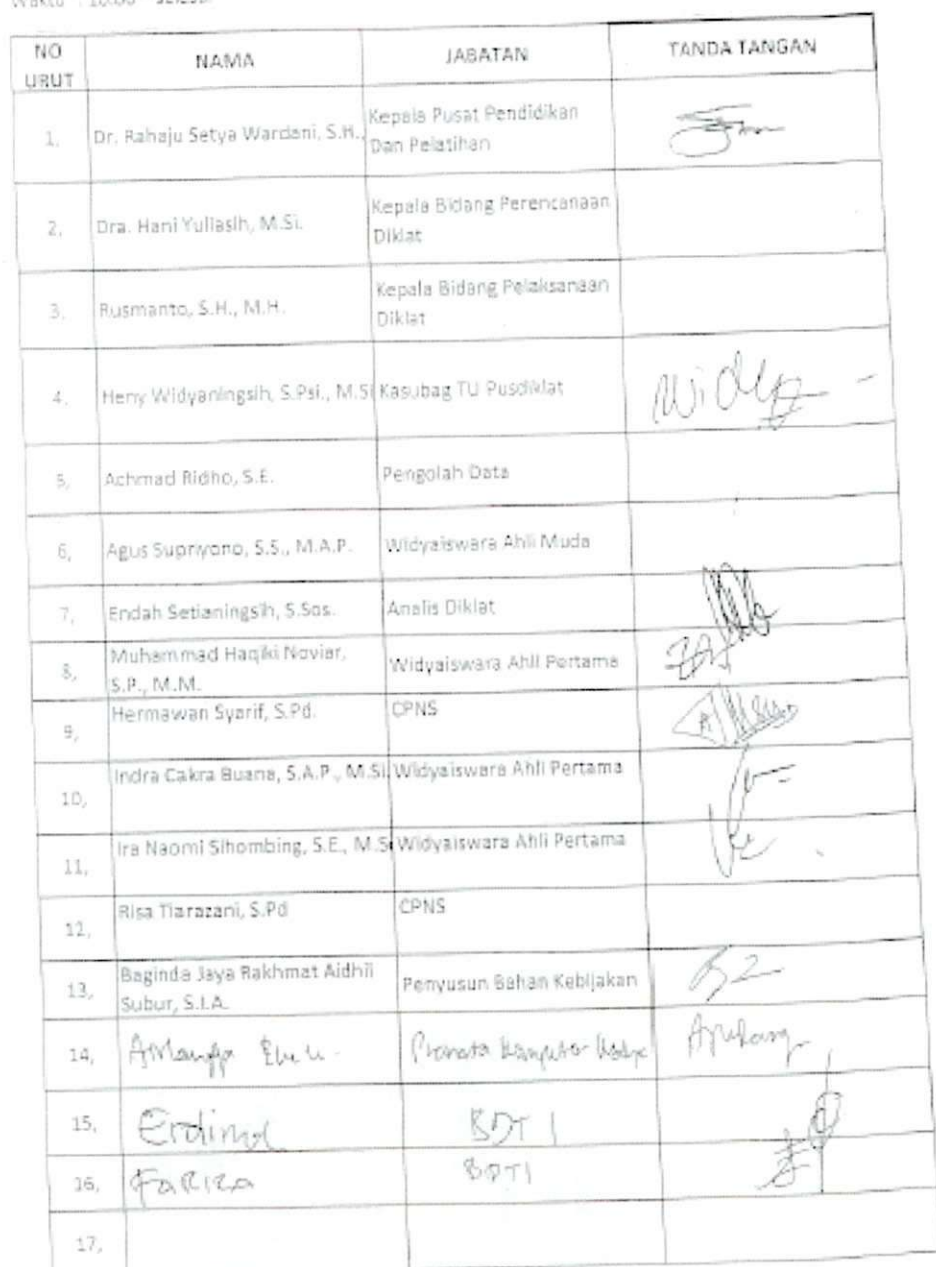 Waktu : 10.00 - Selesai
NO URUT NAMA JABATAN TANDA TANGAN
1, Dr. Rahaju Setya Wardani, S.H., Kepala Pusat Pendidikan Dan Pelatihan
2, Dra. Hani Yuliasih, M.Si. Kepala Bidang Perencanaan Diklat
3, Rusmanto, S.H., M.H. Kepala Bidang Pelaksanaan Diklat
4, Heny Widyaningsih, S.Psi., M.Si Kasubag TU Pusdiklat Widy
5, Achmad Ridho, S.E. Pengolah Data
6, Agus Supriyono, S.S., M.A.P. Widyaiswara Ahli Muda
7, Endah Setianingsih, S.Sos. Analis Diklat
8, Muhammad Haqiki Noviar, S.P., M.M. Widyaiswara Ahli Pertama
9, Hermawan Syarif, S.Pd. CPNS
10, Indra Cakra Buana, S.A.P., M.Si. Widyaiswara Ahli Pertama
11, Ira Naomi Sihombing, S.E., M.S Widyaiswara Ahli Pertama
12, Risa Tiarazani, S.Pd CPNS
13, Baginda Jaya Rakhmat Aidhil Subur, S.I.A. Penyusun Bahan Kebijakan
14, Pranata Komputer
15, Erdima BDTI
16, Fariza BDTI
17,